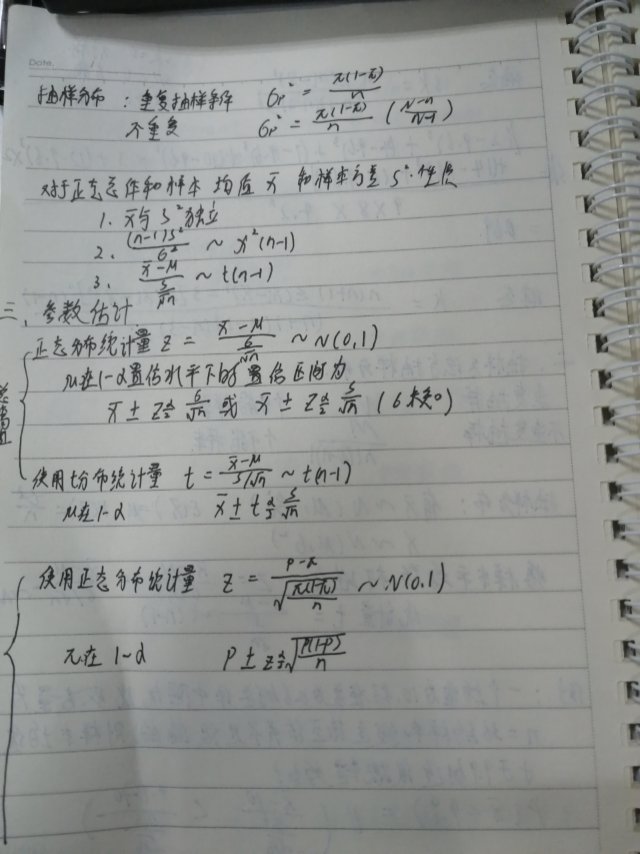 Date.
抽样分布：重复抽样条件 σp² = π(1-π)/n
不重复 σp² = π(1-π)/n (N-n/N-1)
对于正态总体和样本均值 x̄ 和样本方差 S²：性质
1. x̄与S²独立
2. (n-1)S²/σ² ~ χ²(n-1)
3. x̄-μ/(S/√n) ~ t(n-1)
三、参数估计
正态分布统计量 z = x̄-μ/(σ/√n) ~ N(0,1)
μ在1-α置信水平下的置信区间为
x̄ ± Zα/2 σ/√n 或 x̄ ± Zα/2 S/√n (σ未知)
总体均值
使用t分布统计量 t = x̄-μ/(S/√n) ~ t(n-1)
μ在1-α x̄ ± tα/2 S/√n
使用正态分布统计量 z = P-π/√(π(1-π)/n) ~ N(0,1)
π在 1-α P ± zα/2 √(P(1-P)/n)